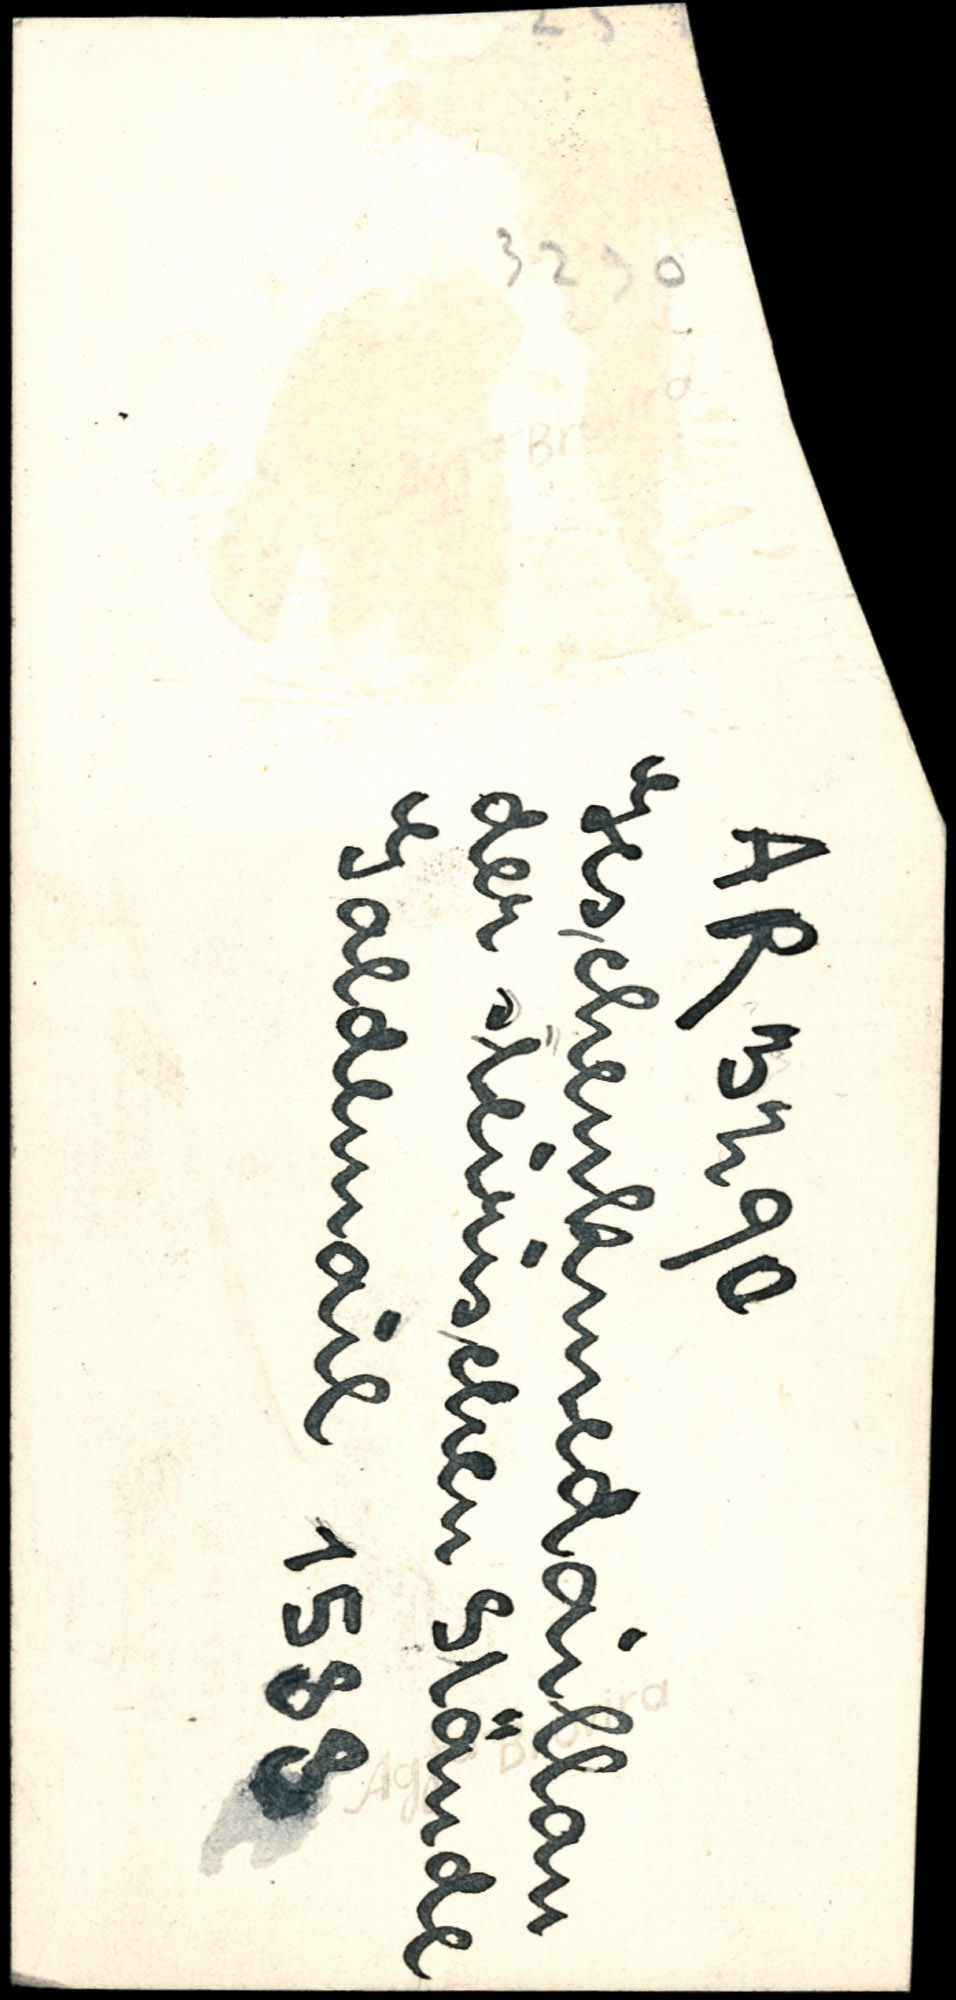 3290
Agfa Brovira
AR 3290
Geschenkmedaillon
der steirischen Stände
Goldemail 1588
Agfa Brovira